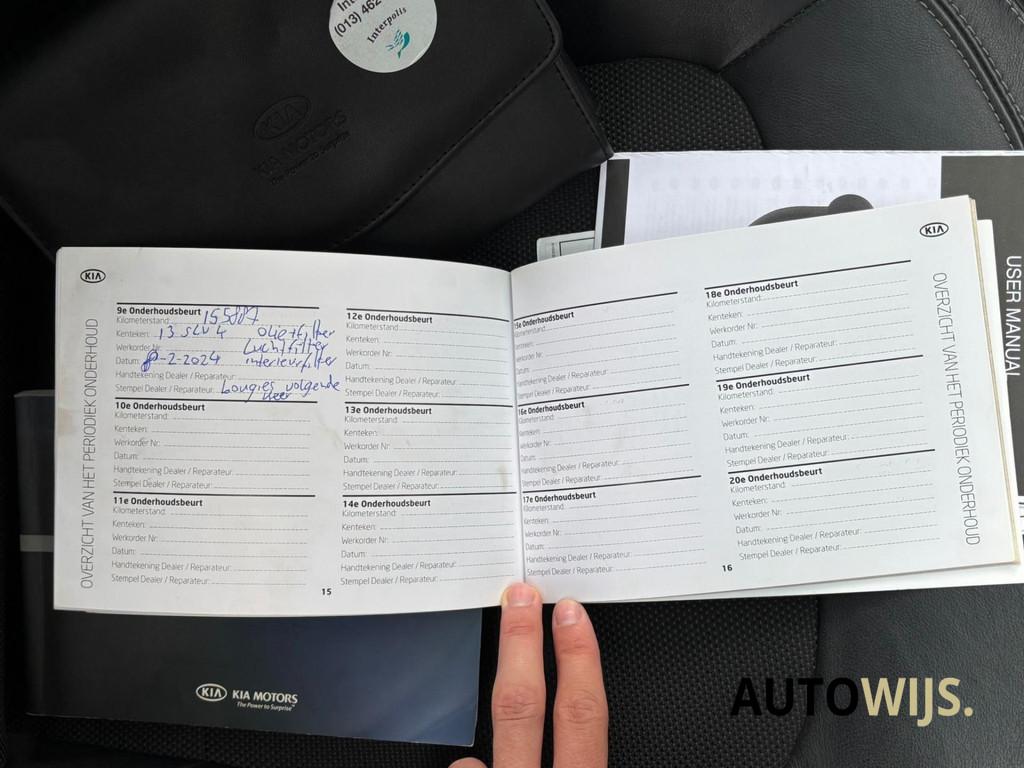 (013) 462
Interpolis
KIA
KIA MOTORS
The Power to Surprise
USER MANUAL
KIA
OVERZICHT VAN HET PERIODIEK ONDERHOUD
9e Onderhoudsbeurt
Kilometerstand: 155887
Kenteken: 13 SLV 4 oliefilter
Werkorder Nr: Luchtfilter
Datum: 8-2-2024 interieurfilter
Handtekening Dealer / Reparateur:
Stempel Dealer / Reparateur: Bougies volgende
keer
10e Onderhoudsbeurt
Kilometerstand:
Kenteken:
Werkorder Nr:
Datum:
Handtekening Dealer / Reparateur:
Stempel Dealer / Reparateur:
11e Onderhoudsbeurt
Kilometerstand:
Kenteken:
Werkorder Nr:
Datum:
Handtekening Dealer / Reparateur:
Stempel Dealer / Reparateur:
12e Onderhoudsbeurt
Kilometerstand:
Kenteken:
Werkorder Nr:
Datum:
Handtekening Dealer / Reparateur:
Stempel Dealer / Reparateur:
13e Onderhoudsbeurt
Kilometerstand:
Kenteken:
Werkorder Nr:
Datum:
Handtekening Dealer / Reparateur:
Stempel Dealer / Reparateur:
14e Onderhoudsbeurt
Kilometerstand:
Kenteken:
Werkorder Nr:
Datum:
Handtekening Dealer / Reparateur:
Stempel Dealer / Reparateur:
15
15e Onderhoudsbeurt
Kilometerstand:
Kenteken:
Werkorder Nr:
Datum:
Handtekening Dealer / Reparateur:
Stempel Dealer / Reparateur:
16e Onderhoudsbeurt
Kilometerstand:
Kenteken:
Werkorder Nr:
Datum:
Handtekening Dealer / Reparateur:
Stempel Dealer / Reparateur:
17e Onderhoudsbeurt
Kilometerstand:
Kenteken:
Werkorder Nr:
Datum:
Handtekening Dealer / Reparateur:
Stempel Dealer / Reparateur:
18e Onderhoudsbeurt
Kilometerstand:
Kenteken:
Werkorder Nr:
Datum:
Handtekening Dealer / Reparateur:
Stempel Dealer / Reparateur:
19e Onderhoudsbeurt
Kilometerstand:
Kenteken:
Werkorder Nr:
Datum:
Handtekening Dealer / Reparateur:
Stempel Dealer / Reparateur:
20e Onderhoudsbeurt
Kilometerstand:
Kenteken:
Werkorder Nr:
Datum:
Handtekening Dealer / Reparateur:
Stempel Dealer / Reparateur:
16
KIA
OVERZICHT VAN HET PERIODIEK ONDERHOUD
KIA KIA MOTORS
The Power to Surprise™
AUTOWIJS.